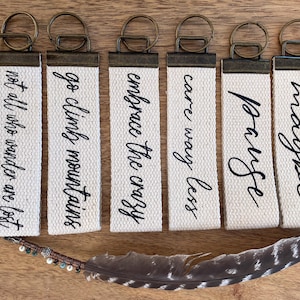 not all who wander are lost
go climb mountains
embrace the crazy
care way less
pause